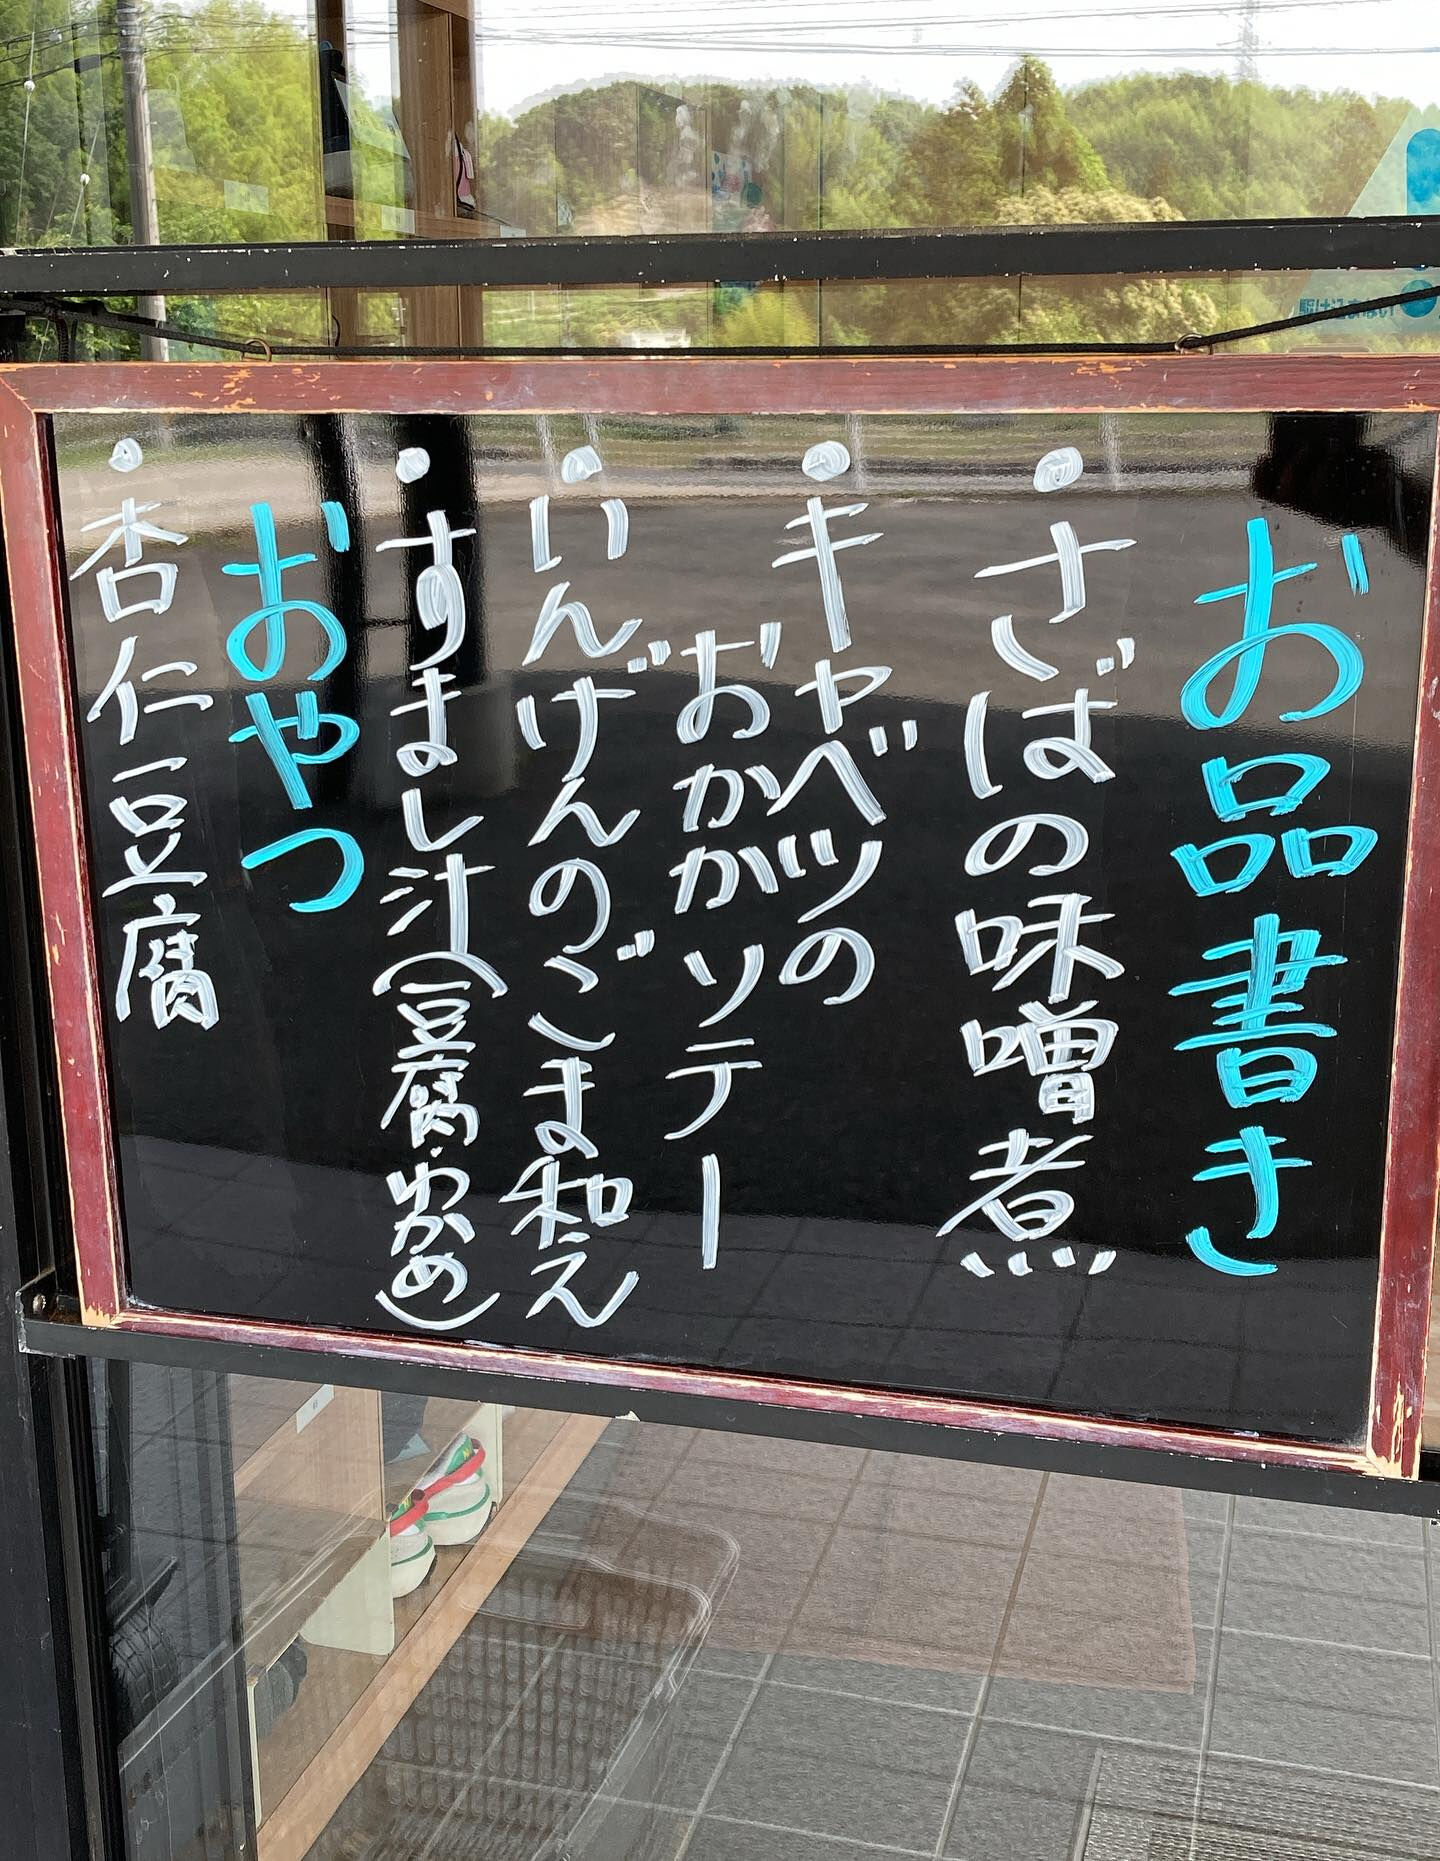 お品書き
・さばの味噌煮
・キャベツの
おかかソテー
・いんげんのごま和え
・すまし汁(豆腐・わかめ)
おやつ
・杏仁豆腐